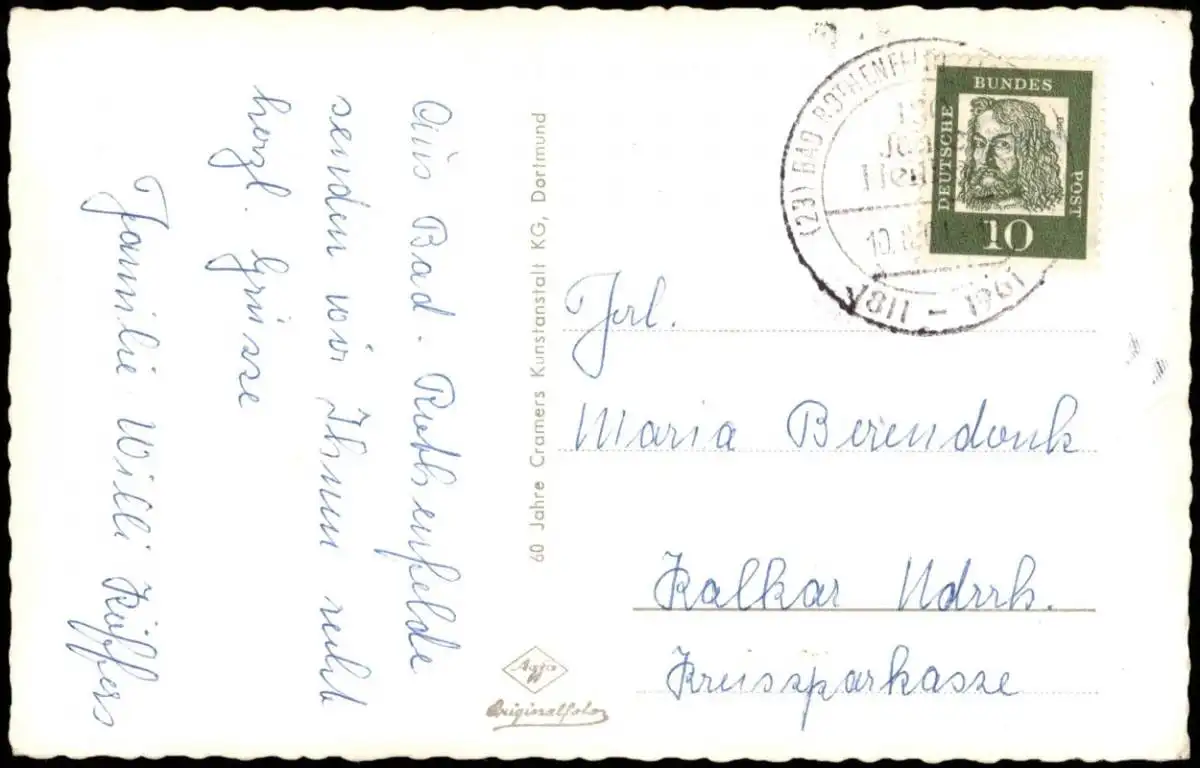 Aus Bad-Rothenfelde
senden wir Ihnen recht
herzl. Grüsse
Familie Willi Küppers
60 Jahre Cramers Kunstanstalt KG, Dortmund
Agfa
Originalfoto
(23) BAD ROTHENFELDE
1811 - 1961
DEUTSCHE
BUNDES
POST
10
Frl.
Maria Berendonk
Kalkar Ndrrh.
Kreissparkasse